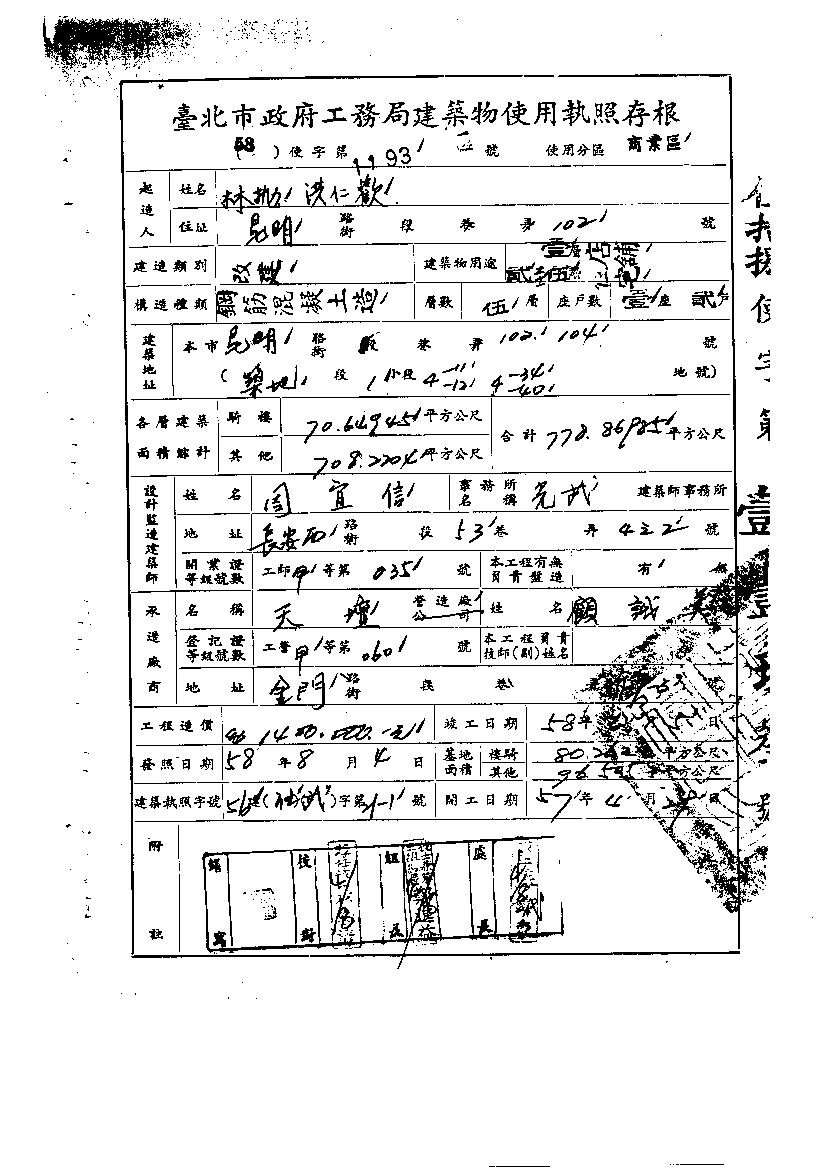 臺北市政府工務局建築物使用執照存根
(58)使字第1193號 使用分區 商業區
起造人 姓名 林 洪仁歡
住址 昆明 路街 段 巷 弄 102 號
建造類別 改建 建築物用途 壹層店舖 貳至伍層住宅
構造種類 鋼筋混凝土造 層數 伍層 座戶數 壹座 貳戶
建築地址 本市 昆明 路街 段 巷 弄 102. 104 號
(築地 段 1 小段 4-11 4-12 4-34 4-40 地號)
各層建築面積總計 騎樓 70.64945 平方公尺 合計 778.86985 平方公尺
其他 708.2204 平方公尺
設計監造建築師 姓名 周宜信 事務所名稱 光武 建築師事務所
地址 長安西 路街 段 53 巷 弄 4之2 號
開業證等級號數 工師甲等第 035 號 本工程有無負責監造 有 無
承造廠商 名稱 天壇 營造廠公司 姓名 顧誠美
登記證等級號數 工營甲等第 0601 號 本工程負責技師(副)姓名
地址 金門 路街 段 巷 號
工程造價 1400.000.-元 竣工日期 58年 日
發照日期 58年8月4日 基地面積 騎樓 80. 平方公尺
其他 96. 平方公尺
建築執照字號 56建()字第 號 開工日期 57年4月 日
附註
繕寫 校對 組長 處長
使字第壹 號